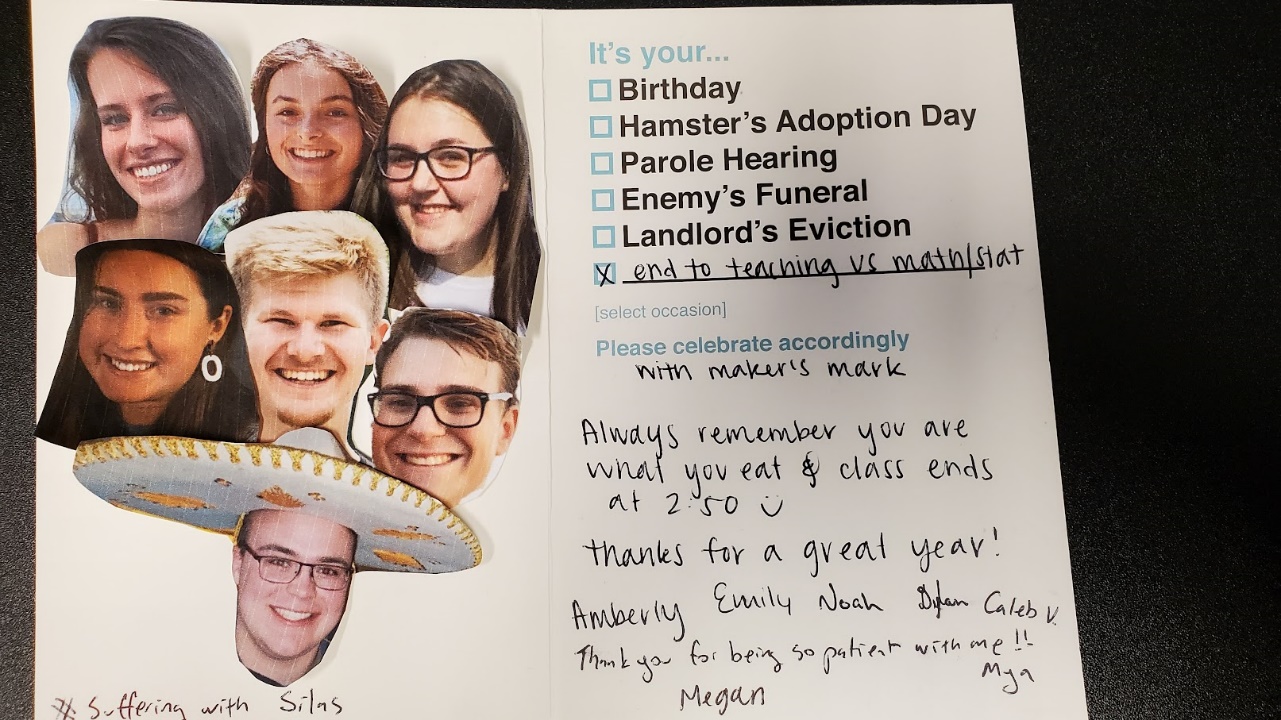 # Suffering with Silas
It's your...
Birthday
Hamster's Adoption Day
Parole Hearing
Enemy's Funeral
Landlord's Eviction
X end to teaching vs math/stat
[select occasion]
Please celebrate accordingly
with maker's mark
Always remember you are
what you eat & class ends
at 2:50
thanks for a great year!
Amberly Emily Noah Dylan Caleb V.
Thank you for being so patient with me!!
Mya
Megan